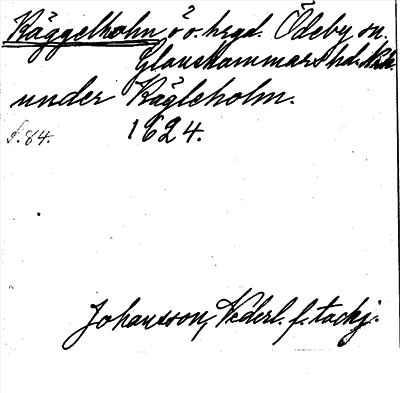 Käggelholm ö o. hrgd. Ödeby sn.
Glanshammars hd. Nrk.
under Kägleholm.
S. 84. 1624.
Johansson, Nederl. f. tackj.